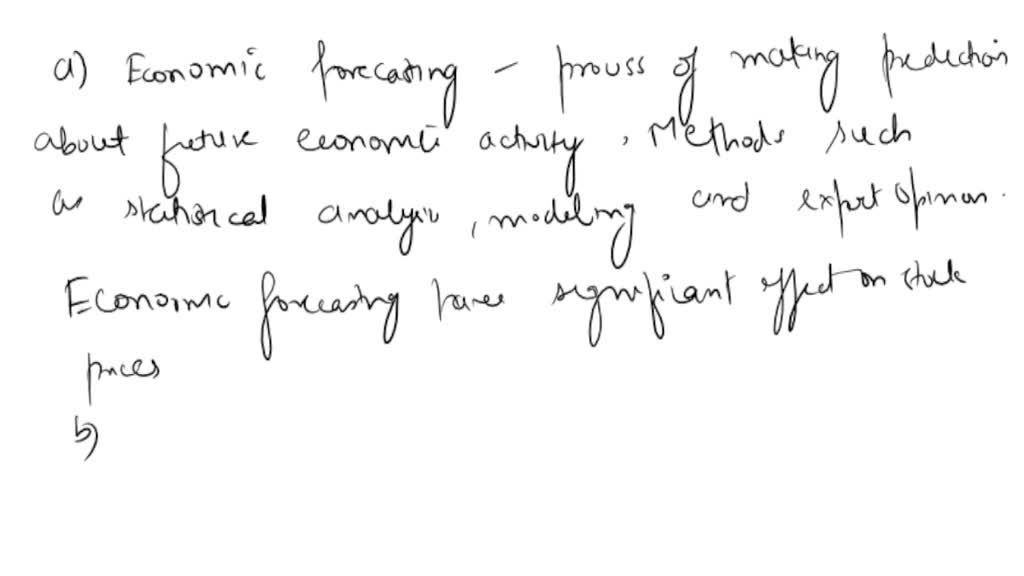 a) Economic forecasting - process of making prediction
about future economic activity, Methods such
as statistical analysis, modeling and expert opinion.
Economic forecasting have significant effect on stock
prices
b)